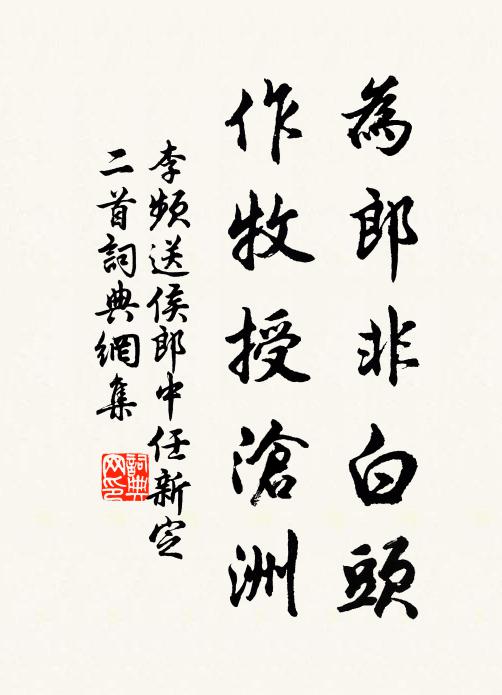 為郎非白頭
作牧授滄洲
李頻送侯郎中任新定
二首詞典網集
詞典
网印